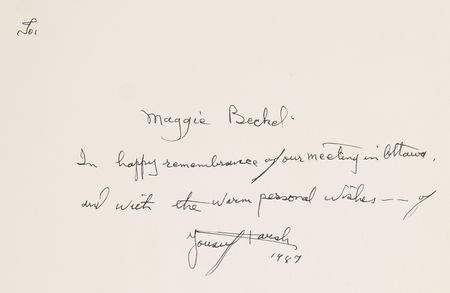 To:
Maggie Beckel.
In happy remembrance of our meeting in Ottawa,
and with the warm personal wishes -- of
Yousuf Karsh
1987